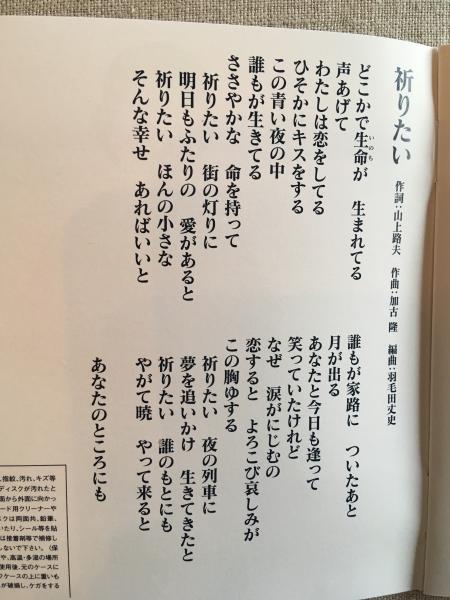 祈りたい
作詞：山上路夫　作曲：加古 隆　編曲：羽毛田丈史
どこかで生命が　生まれてる
いのち
声あげて
わたしは恋をしてる
ひそかにキスをする
この青い夜の中
誰もが生きてる
ささやかな　命を持って
祈りたい　街の灯りに
明日もふたりの　愛があると
祈りたい　ほんの小さな
そんな幸せ　あればいいと
誰もが家路に　ついたあと
月が出る
あなたと今日も逢って
笑っていたけれど
なぜ　涙がにじむの
恋すると　よろこび哀しみが
この胸ゆする
祈りたい　夜の列車に
夢を追いかけ　生きてきたと
祈りたい　誰のもとにも
やがて暁　やって来ると
あなたのところにも
、指紋、汚れ、キズ等
ディスクが汚れたと
面から外面に向かっ
ード用クリーナーや
スクは両面共、鉛筆、
いたり、シール等を貼
は接着剤等で補修し
しないで下さい。（保
や、高温・多湿の場所
使用後、元のケースに
ケースの上に重いも
が破損し、ケガをする